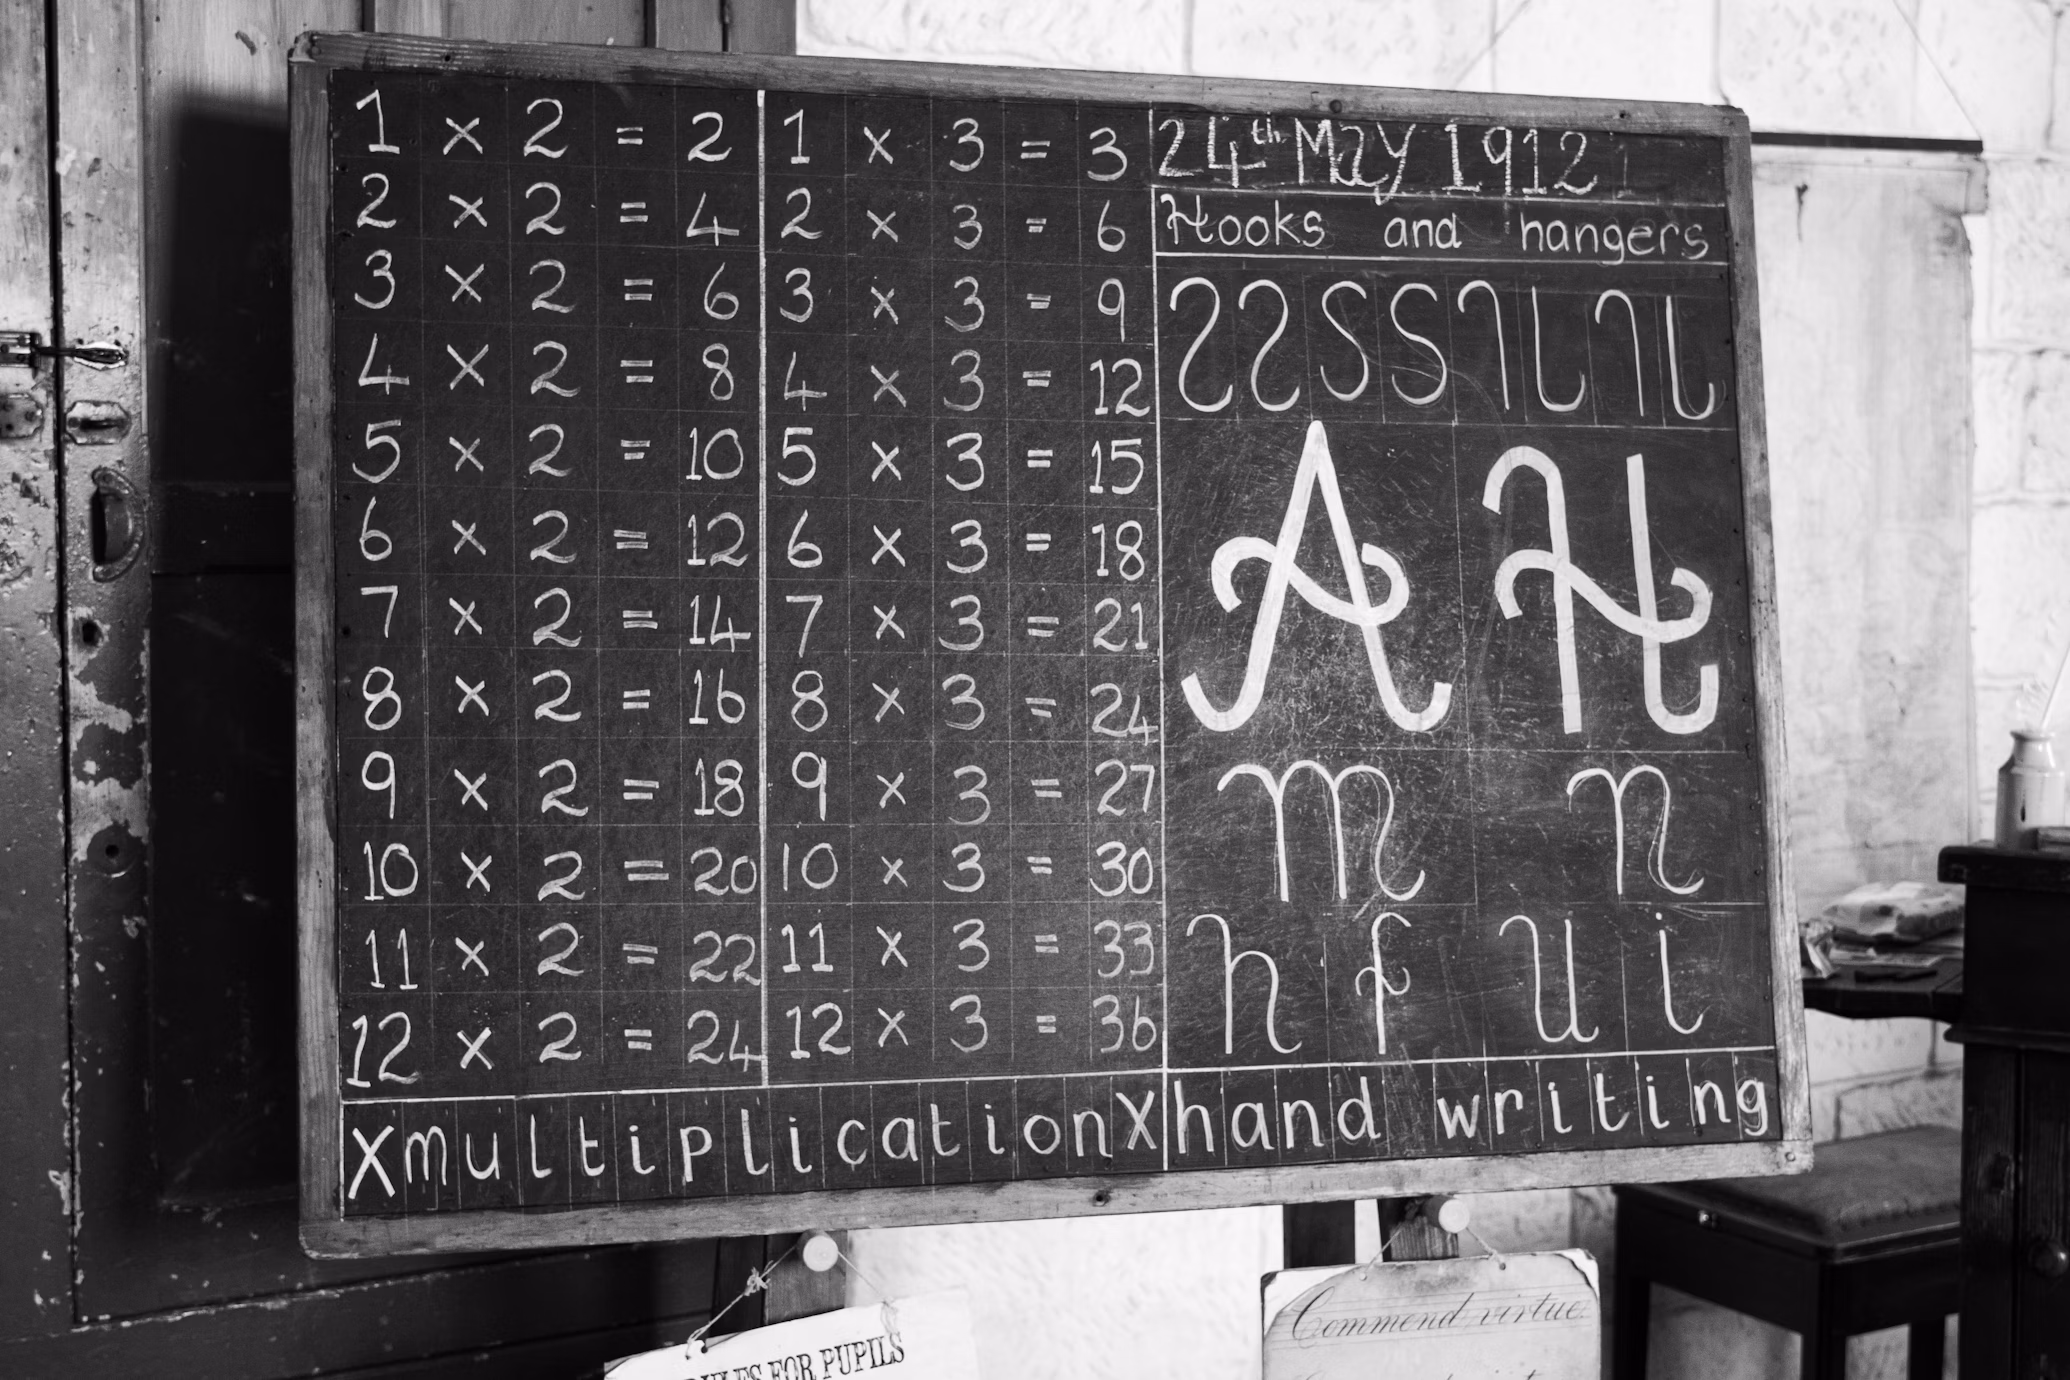 1 × 2 = 2
2 × 2 = 4
3 × 2 = 6
4 × 2 = 8
5 × 2 = 10
6 × 2 = 12
7 × 2 = 14
8 × 2 = 16
9 × 2 = 18
10 × 2 = 20
11 × 2 = 22
12 × 2 = 24
1 × 3 = 3
2 × 3 = 6
3 × 3 = 9
4 × 3 = 12
5 × 3 = 15
6 × 3 = 18
7 × 3 = 21
8 × 3 = 24
9 × 3 = 27
10 × 3 = 30
11 × 3 = 33
12 × 3 = 36
X multiplication X
24th May 1912
Hooks and hangers
A H
m n
h f u i
hand writing
RULES FOR PUPILS
Commend virtue.